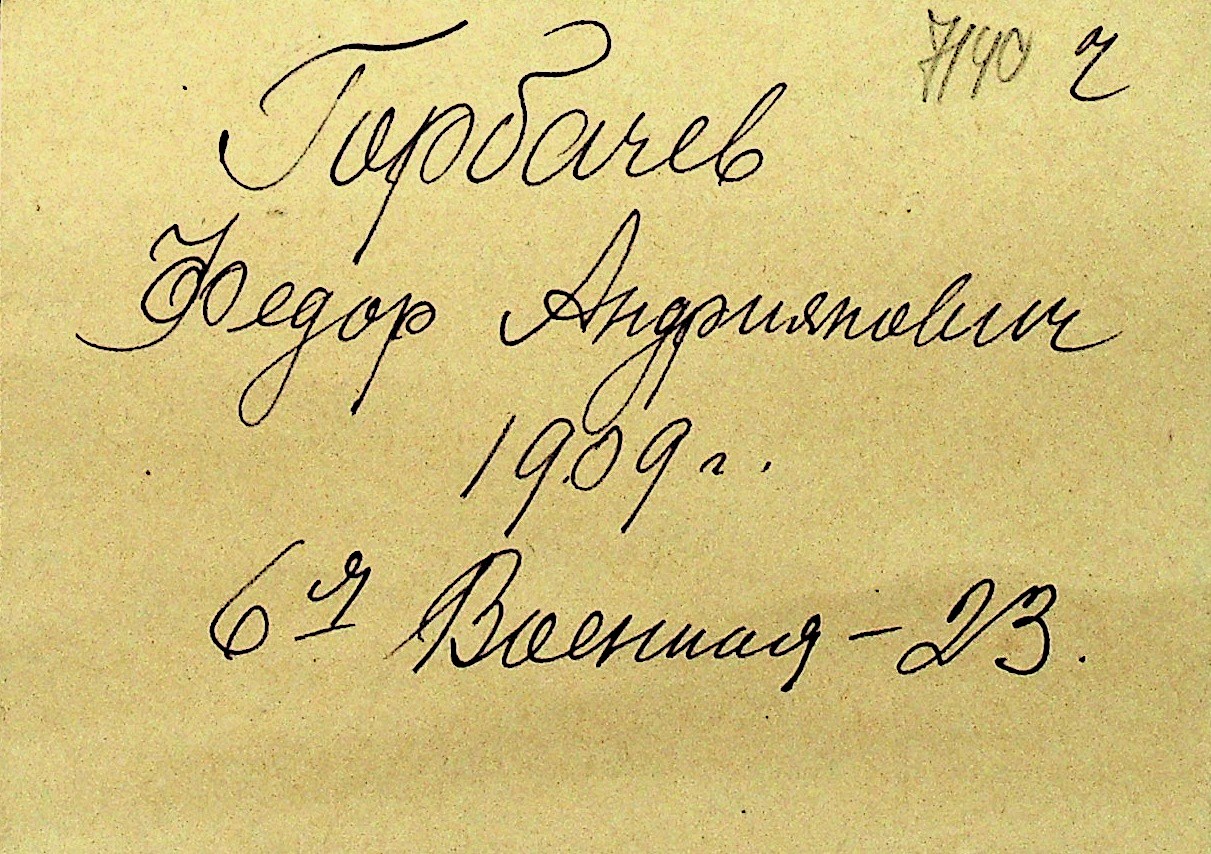 7140 ч
Горбачев
Федор Андриянович
1909 г.
6я Военная - 23.